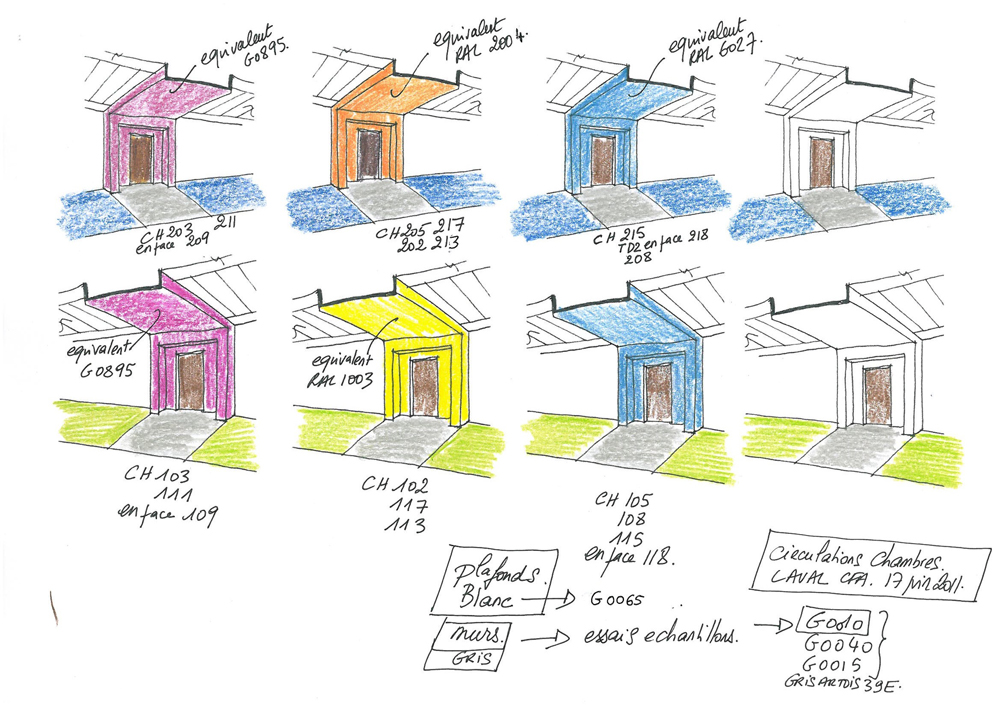 equivalent
G0895.
equivalent
RAL 2004.
equivalent
RAL 6027.
CH 203 211
en face 209
CH 205 217
202 213
CH 215
TD2 en face 218
208
equivalent
G0895
equivalent
RAL 1003
CH 103
111
en face 109
CH 102
117
113
CH 105
108
115
en face 118.
plafonds.
Blanc → G0065
murs. → essais echantillons. → G0010
GRIS
G0040
G0015
GRIS ARTOIS 39E.
Circulations Chambres.
LAVAL CFA. 17 juin 2011.